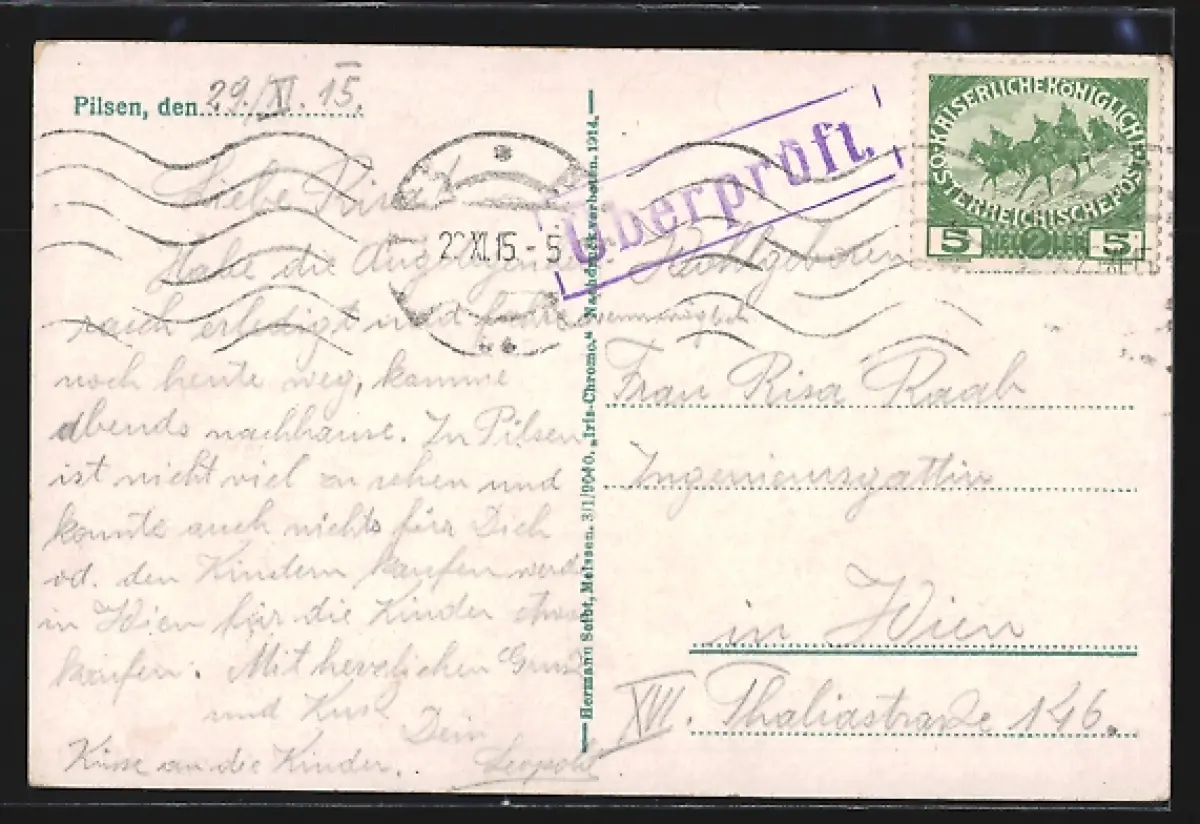 Pilsen, den 29./XI. 15.
Liebe Risa!
Habe die Angelegenheit
rasch erledigt und fahre wenn möglich
noch heute weg, komme
abends nachhause. In Pilsen
ist nicht viel zu sehen und
konnte auch nichts für Dich
od. den Kindern kaufen werde
in Wien für die Kinder etwas
kaufen. Mit herzlichen Gruß
und Kuss
Dein
Leopold
Küsse an die Kinder.
2 XI.15-5
Überprüft.
Hermann Seibt, Meissen. 3/1/9040. „Iris-Chromo.“ Nachdruck verboten. 1914.
KAISERLICHE KÖNIGLICHE
ÖSTERREICHISCHE POST
5 HELLER 5
2
Wohlgeboren
Frau Risa Raab
Ingenieursgattin
in Wien
XVI. Thaliastraße 146.